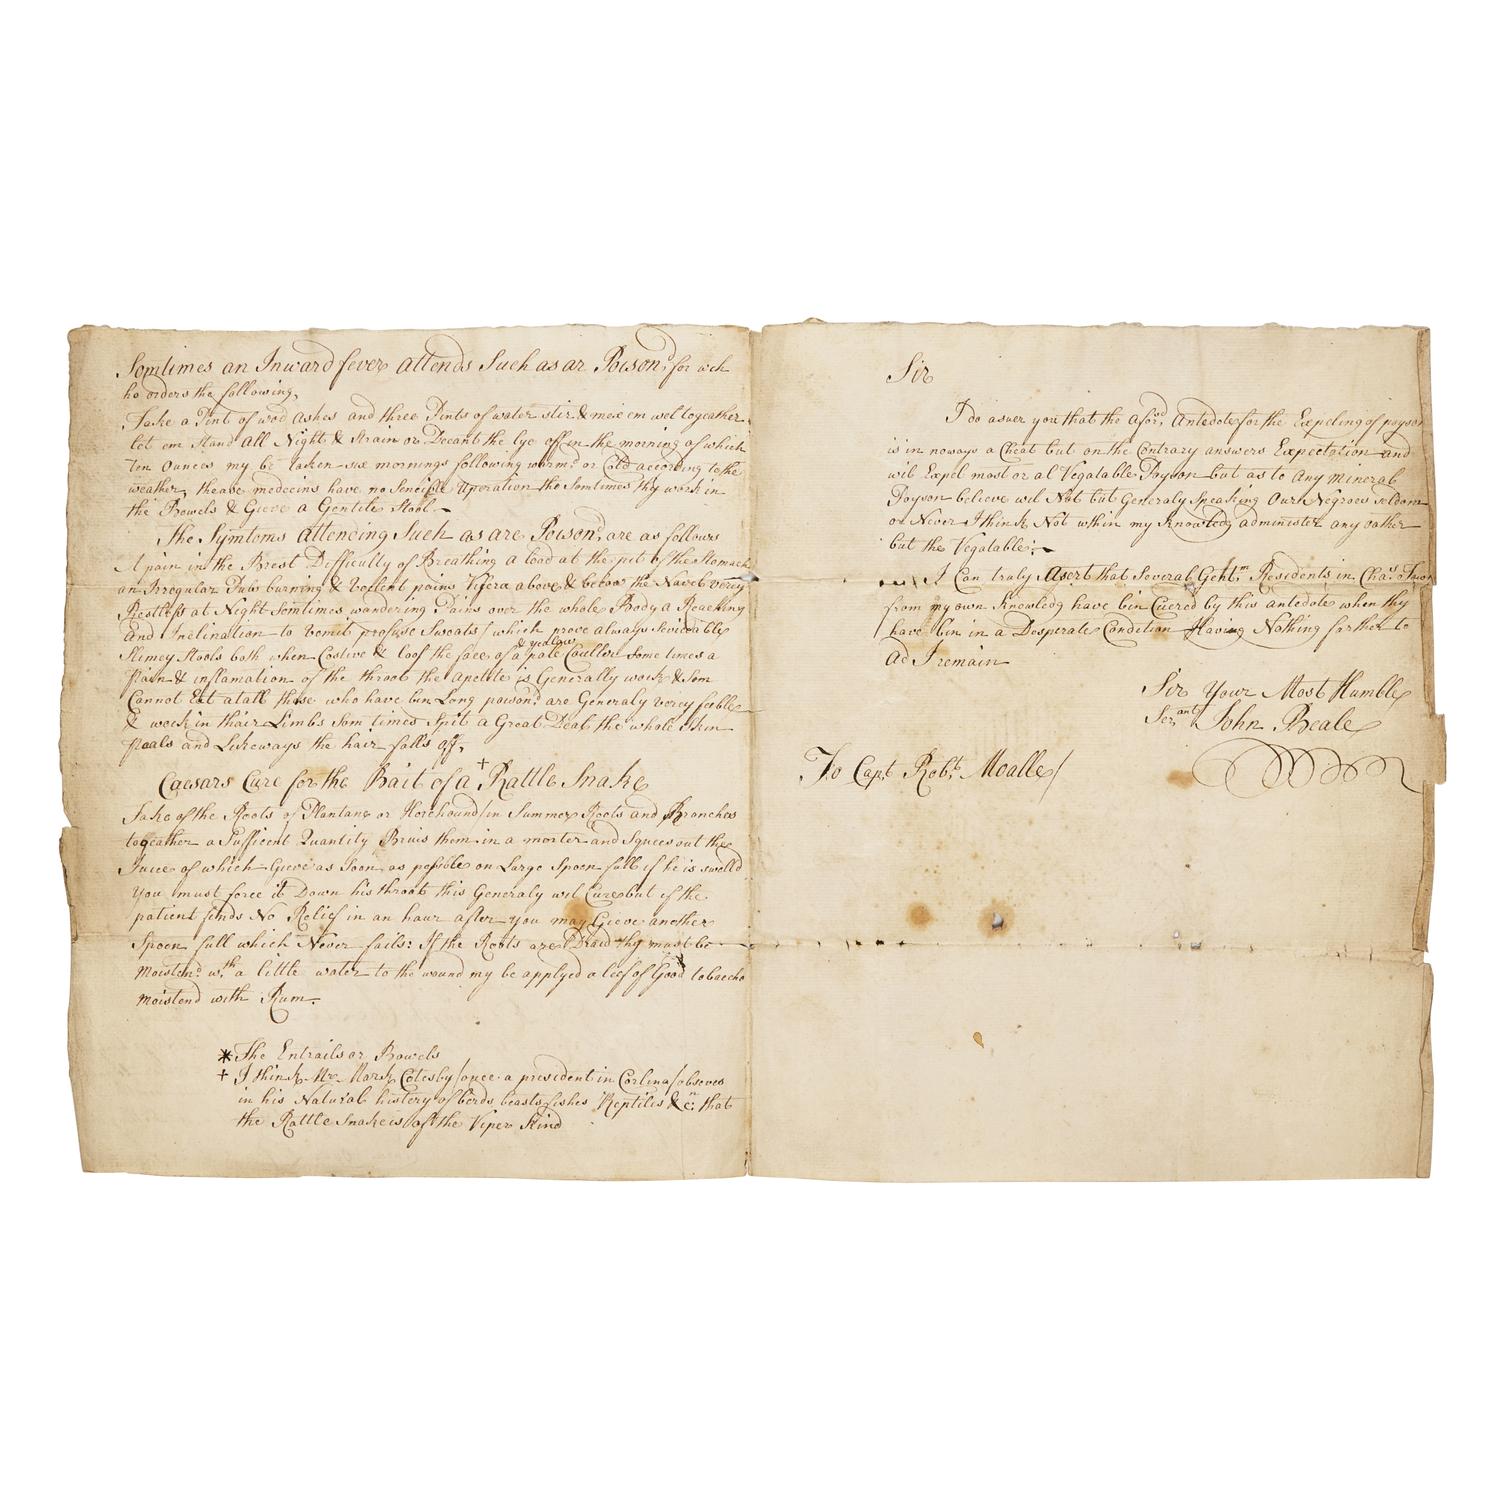 Somtimes an Inward fever attends Such as ar Poison'd, for wch
he orders the following,
Take a Pint of wod ashes and three Pints of water stir & mixe em wel togeather
let em Stand All Night & Strain or Decant the lye off in the morning of which
ten Ounces my be taken six mornings following warm'd or Cold according to the
weather, theave medecins have no Sencible Operation tho Somtimes thy work in
the Bowels & Gieve a Gentile Stool.
The Symtoms attending Such as are Poison'd, are as follows
A pain in the Brest Difficulty of Breathing a load at the pit of the Stomach
an Irregular Puls burning & Vollent pains Vissera above & below the Navel verey
Restless at Night Somtimes wandering Pains over the whole Body a Reaching
And Inclination to Vomit profuse Sweats / which prove always Sevicable
Slimey Stools both when Costive & loos the face of a pale & yealow Couller Some times a
Pain & inflamation of the throat the apetite is Generally weak & Som
Cannot Eat at all those who have bin Long poison'd are Generaly verey feeble
& weeck in thair Limbs Som times Spit a Great Deal the whole Skin
Peals and Lickeways the hair falls off,
Caesars Cure for the Bait of a + Rattle Snake
Take of the Roots of Plantane or Horehound / in Summer Roots and Branches
togeather a Sufficent Quantity Bruis them in a morter and Squees out the
Juice of which Gieve as Soon as possible on Large Spoon full if he is swell'd
you must force it Down his throat this Generaly wil Cure but if the
patient finds No Relief in an haur after you may Gieve another
Spoon full which Never fails: If the Roots are Draid thy must be
moisten'd wth a little water to the wound my be applyed a leef of Good tobaecho
moistend with Rum.
* The Entrails or Bowels
+ I think Mr Mark Catesby / once a president in Corlina / obseves
in his Natural histery of birds beasts fishes Reptilis &c: that
the Rattle Snake is of the Viper Kind
Sir
I do asuer you that the afor'd Antedote for the Expeling of poyson
is in noways a Cheat but on the Contrary answers Expectation and
wil Expel most or al Vegatable Poyson but as to Any Mineral
Poyson believe wil Not but Generaly Speaking Our Negroes seldom
or Never I think Not within my Knowledg administer any oather
but the Vegatable:
I Can truly Asert that Several Gentm Residents in Chas Town
from my own Knowledg have bin Cuered by this antedote when thy
have bin in a Desperate Condition Having Nothing farther to
Ad I remain
Sir Your Most Humble
Serant John Beale
To Capt Robt Moalle /